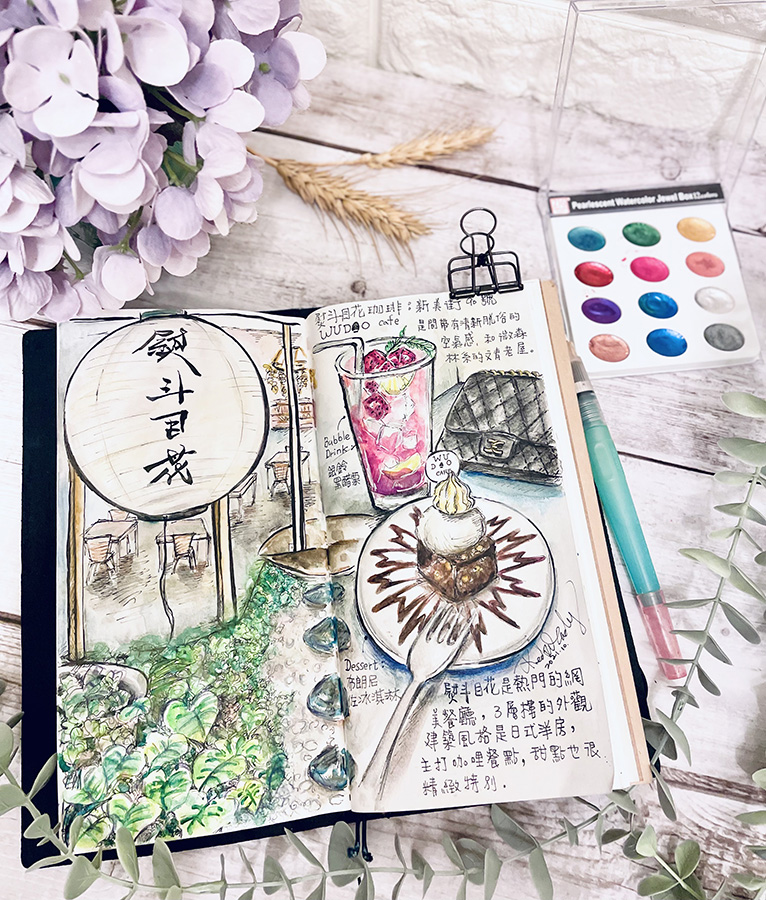 Pearlescent Watercolor Jewel Box 12 colors
熨
斗
目
花
熨斗目花珈琲:新美街96號
WUDAO cafe
是間帶有清新脫俗的
空氣感,和微森
林系的文青老屋。
Bubble
Drink
銀鈴
黑醋栗
WU
DAO
CAFE
Dessert:
布朗尼
佐冰淇淋
熨斗目花是熱門的網
美餐廳,3層樓的外觀
建築風格是日式洋房,
主打咖哩餐點,甜點也很
精緻特別.